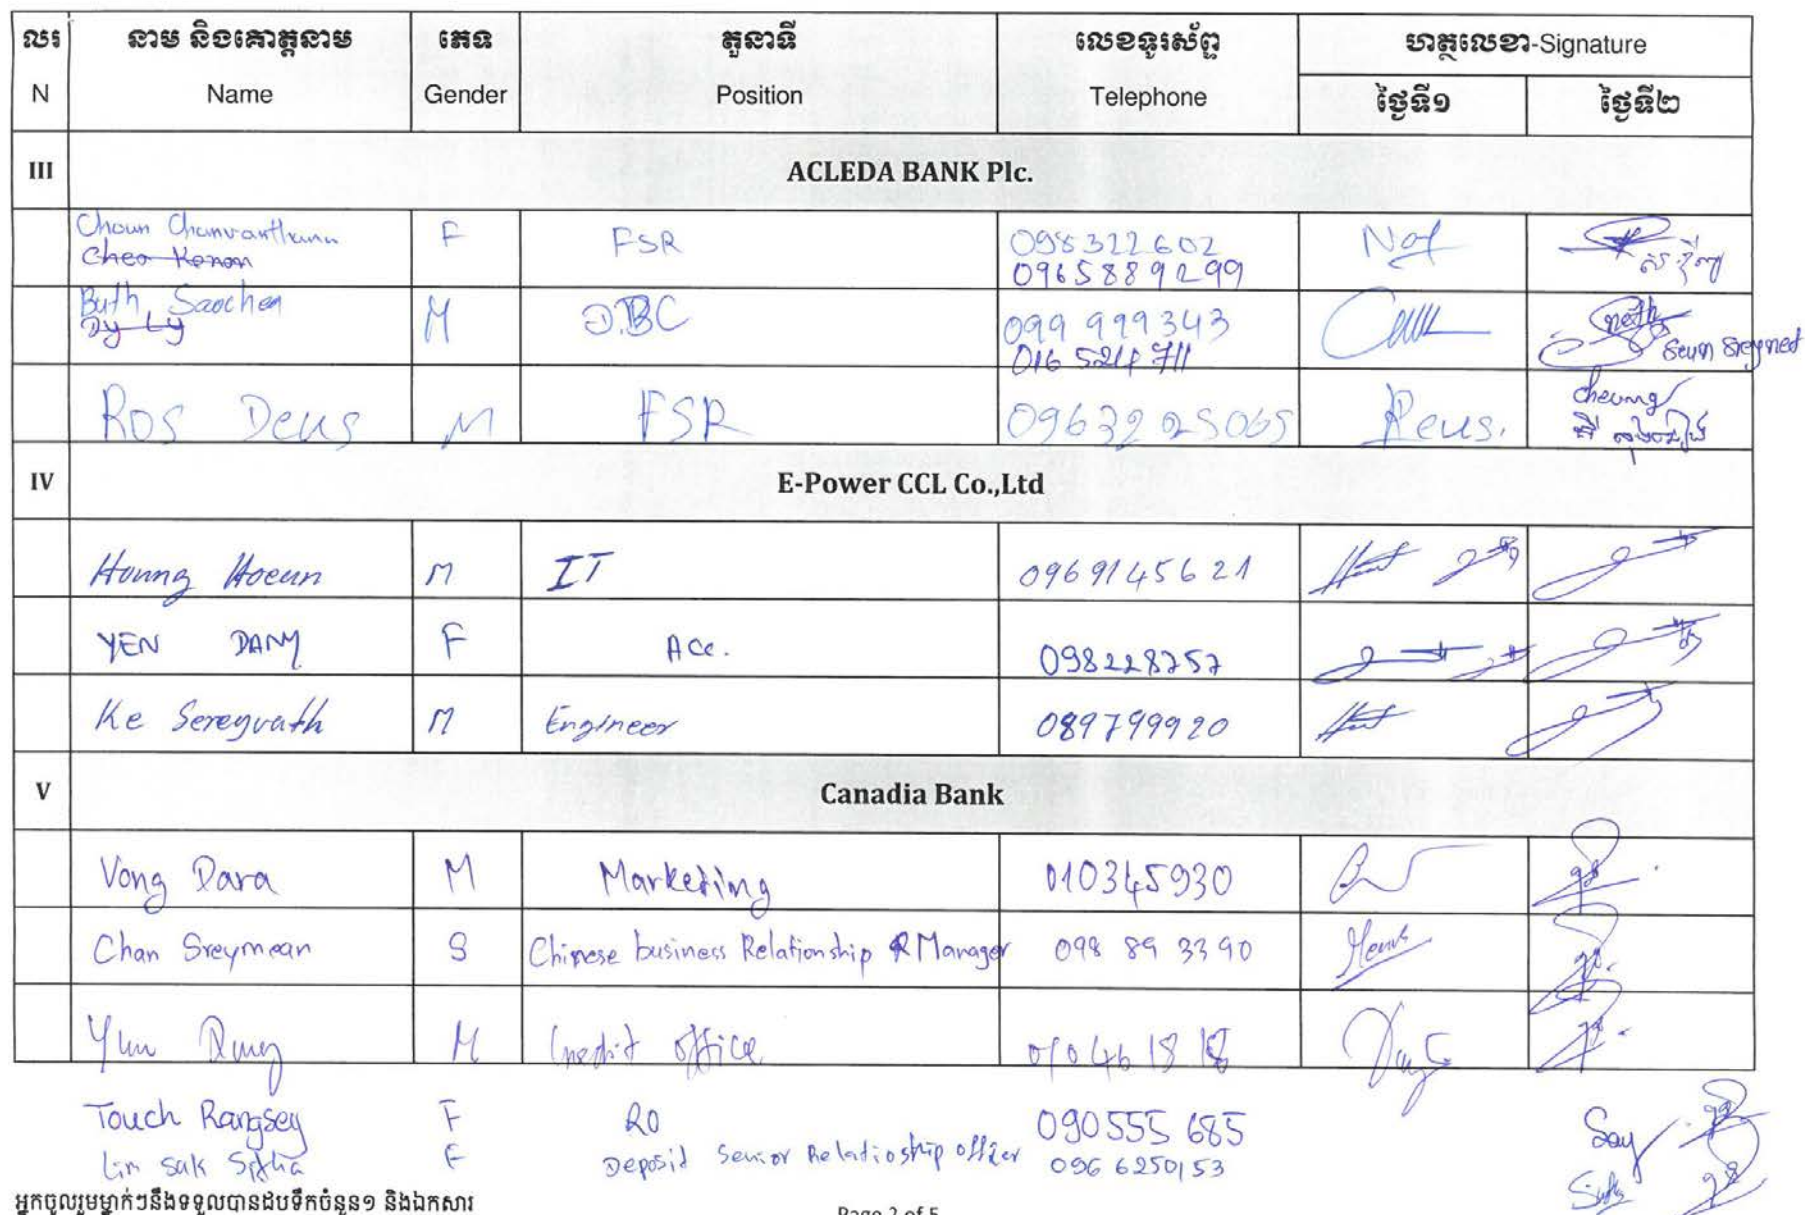 ល រ នាម និងគោត្តនាម ភេទ តួនាទី លេខទូរស័ព្ទ ហត្ថលេខា-Signature
N Name Gender Position Telephone ថ្ងៃទី១ ថ្ងៃទី២
III ACLEDA BANK Plc.
Choun Chanvanthana F FSR 098322602
Cheo Konon 09658892 99
Buth Saochen M 099 999343
Dy Ly 016 524 711 Seun Sreynet
Ros Deus M FSR 0963225065 Reus. cheung
IV E-Power CCL Co.,Ltd
Houng Hoeun M IT 0969145621
YEN DANY F Acc. 098228757
Ke Sereyvath M Engineer 089799920
V Canadia Bank
Vong Dara M Marketing 010345930
Chan Sreymean S Chinese business Relationship R Manager 098 89 3390
M Credit office 010 46 18 18
Touch Rangsey F RO 090555 685 Sey
Lim Sak Sitha F Deposit Senior Relatioship officer 096 6250153
អ្នកចូលរួមម្នាក់ៗនឹងទទួលបានដបទឹកចំនួន១ និងឯកសារ
Page 2 of 5